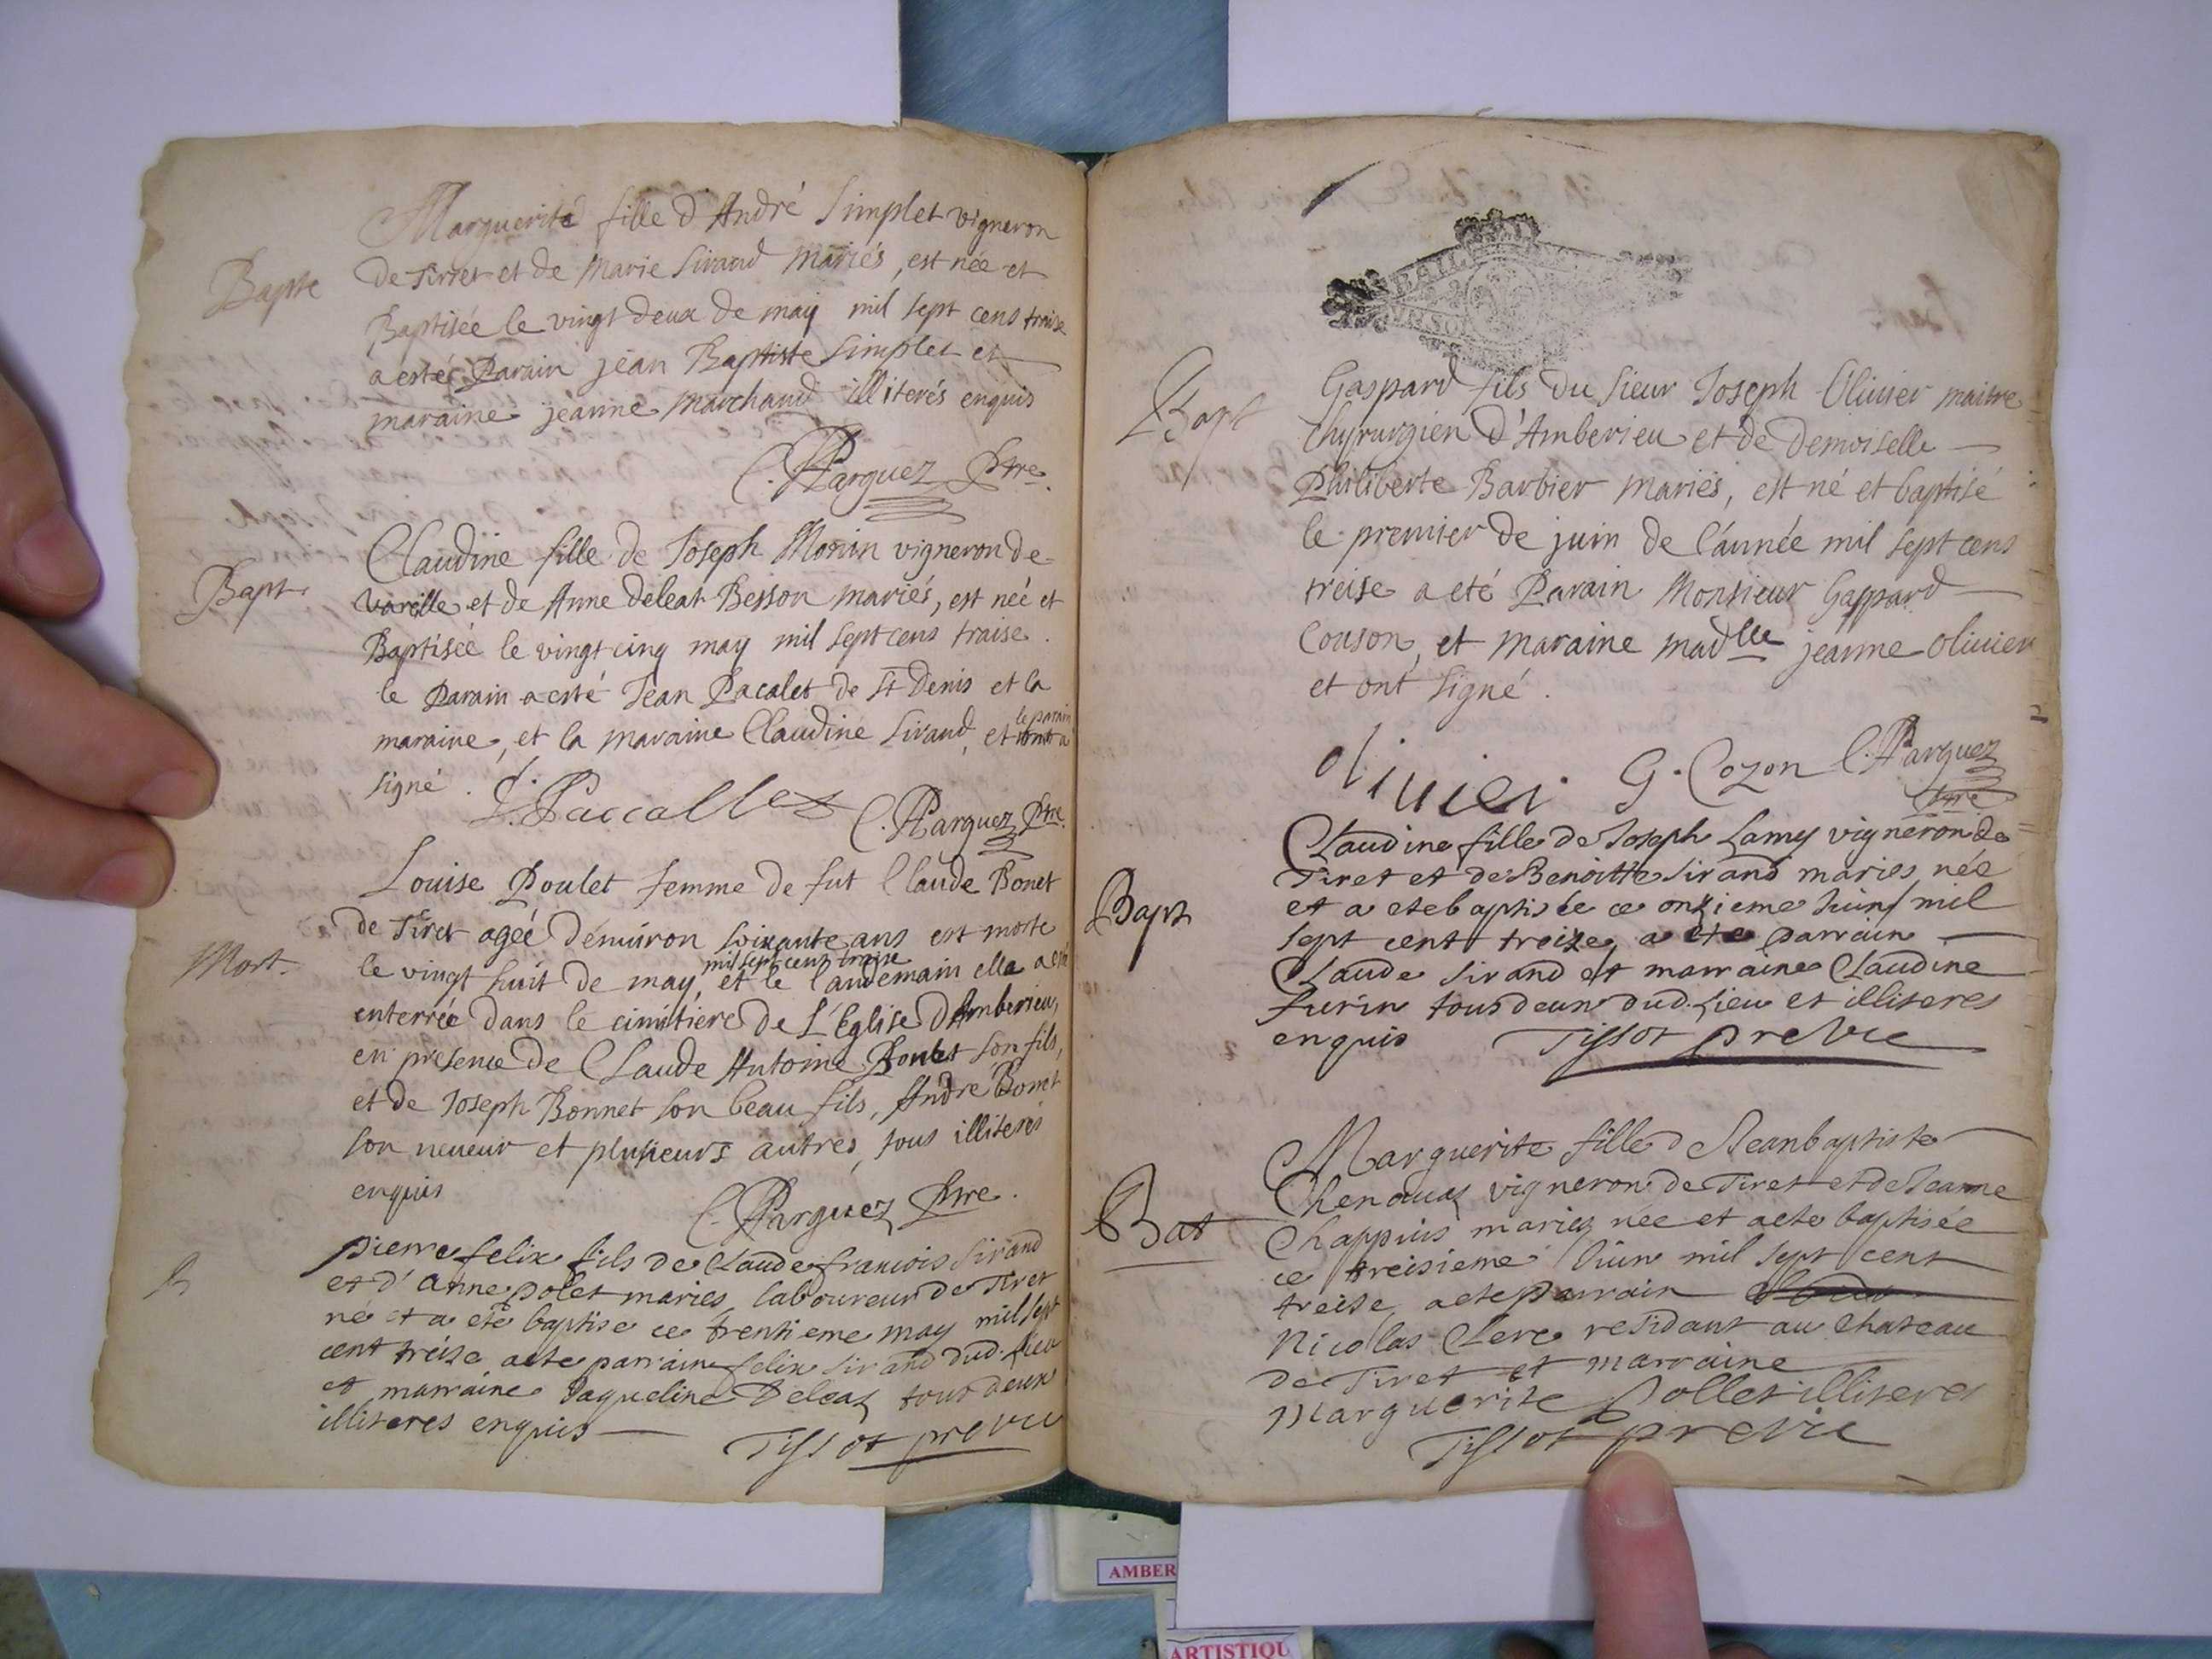 Marguerite fille d'André Simplet vigneron
Bapte
de Tiret et de Marie Sirand mariés, est née et
Baptisée le vingt deux de may mil sept cens traise
a esté Parain jean Baptiste Simplet et
maraine jeanne marchand illiterés enquis
C. Parguez Ptre.
Claudine fille de Joseph Monin vigneron de
Bapt.
Vareille et de Anne deleat Besson mariés, est neé et
Baptisée le vingt cinq may mil sept cens traise.
le Parain a esté Jean Pacalet de St Denis et la
maraine, et la maraine Claudine Sirand, et le parain a
signé.
J. Paccallet C. Parguez Ptre.
Louise Poulet femme de fut Claude Bonet
de Tiret ageé d'enuiron soixante ans est morte
Mort.
le vingt huit de may mil sept cens traise et le landemain elle a esté
enterrée dans le cimitiere de L'Eglise d'Amberieu,
en presence de Claude Antoine Poulet son fils,
et de Joseph Bonnet son beau fils, André Bonet
son neueur et plusieurs autres, tous illiterés
enquis
C. Parguez Ptre.
pierre felix fils de Claude francois Sirand
B
et d'anne polet maries laboureur de Tiret
né et a eté baptise ce trentieme may mil sept
cent treize a ete parrain felix sirand dud. lieu
et marraine Jaqueline Deleaz tous deux
illiteres enquis
Tissot pre vic
Gaspard fils du Sieur Joseph Oliuier maitre
Bapt
Chyrurgien d'Amberieu et de demoiselle
Philiberte Barbier mariés, est né et baptisé
le premier de juin de l'année mil sept cens
treise a eté Parain Monsieur Gaspard
Couson, et maraine madlle jeanne oliuier
et ont signé.
oliuier G. Cozon C. Parguez
Ptre
Claudine fille de Joseph Lamy vigneron de
Tiret et de Benoitte Sirand maries née
Bapt
et a ete baptisée ce onzieme Juin mil
sept cent treize, a ete parrain
Claude Sirand et marraine Claudine
furin tous deux dud. lieu et illiteres
enquis Tissot pre vic
Marguerite fille de Jean baptiste
Chenauaz vigneron de Tiret et de Jeanne
Bat
Chappuis mariez née et a ete baptisée
ce treisieme Juin mil sept cent
treise a ete parrain
Nicolas Clerc residant au chateau
de Tiret et marraine
Marguerite Pollet illiteres
Tissot pre vic
AMBER
ARTISTIQU